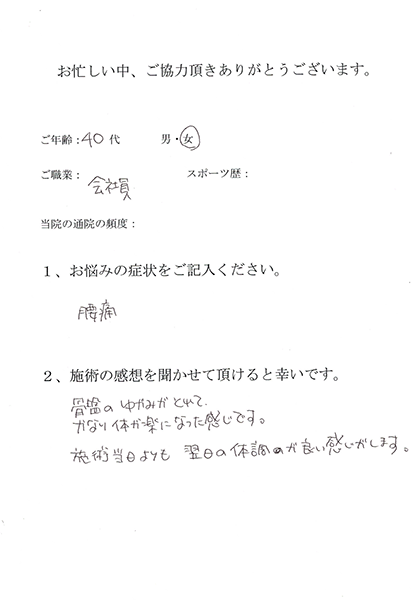 お忙しい中、ご協力頂きありがとうございます。
ご年齢：40代　男・女
ご職業：会社員　スポーツ歴：
当院の通院の頻度：
１、お悩みの症状をご記入ください。
腰痛
２、施術の感想を聞かせて頂けると幸いです。
骨盤のゆがみがとれて、
かなり体が楽になった感じです。
施術当日よりも 翌日の体調のが良い感じがします。